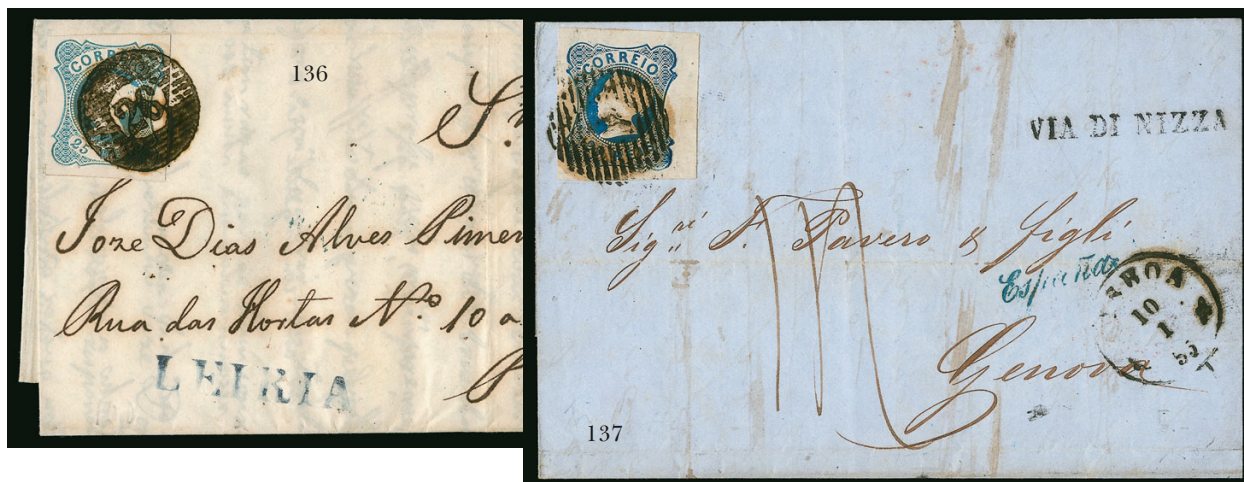 CORREIO
136
28
25
S.
Joze Dias Alves Pimen
Rua das Hortas Nº 10 a
LEIRIA
P
CORREIO
VIA DI NIZZA
Sig.ri F. Pavero & figli
España
LISBOA
10
1
55
Genova
137